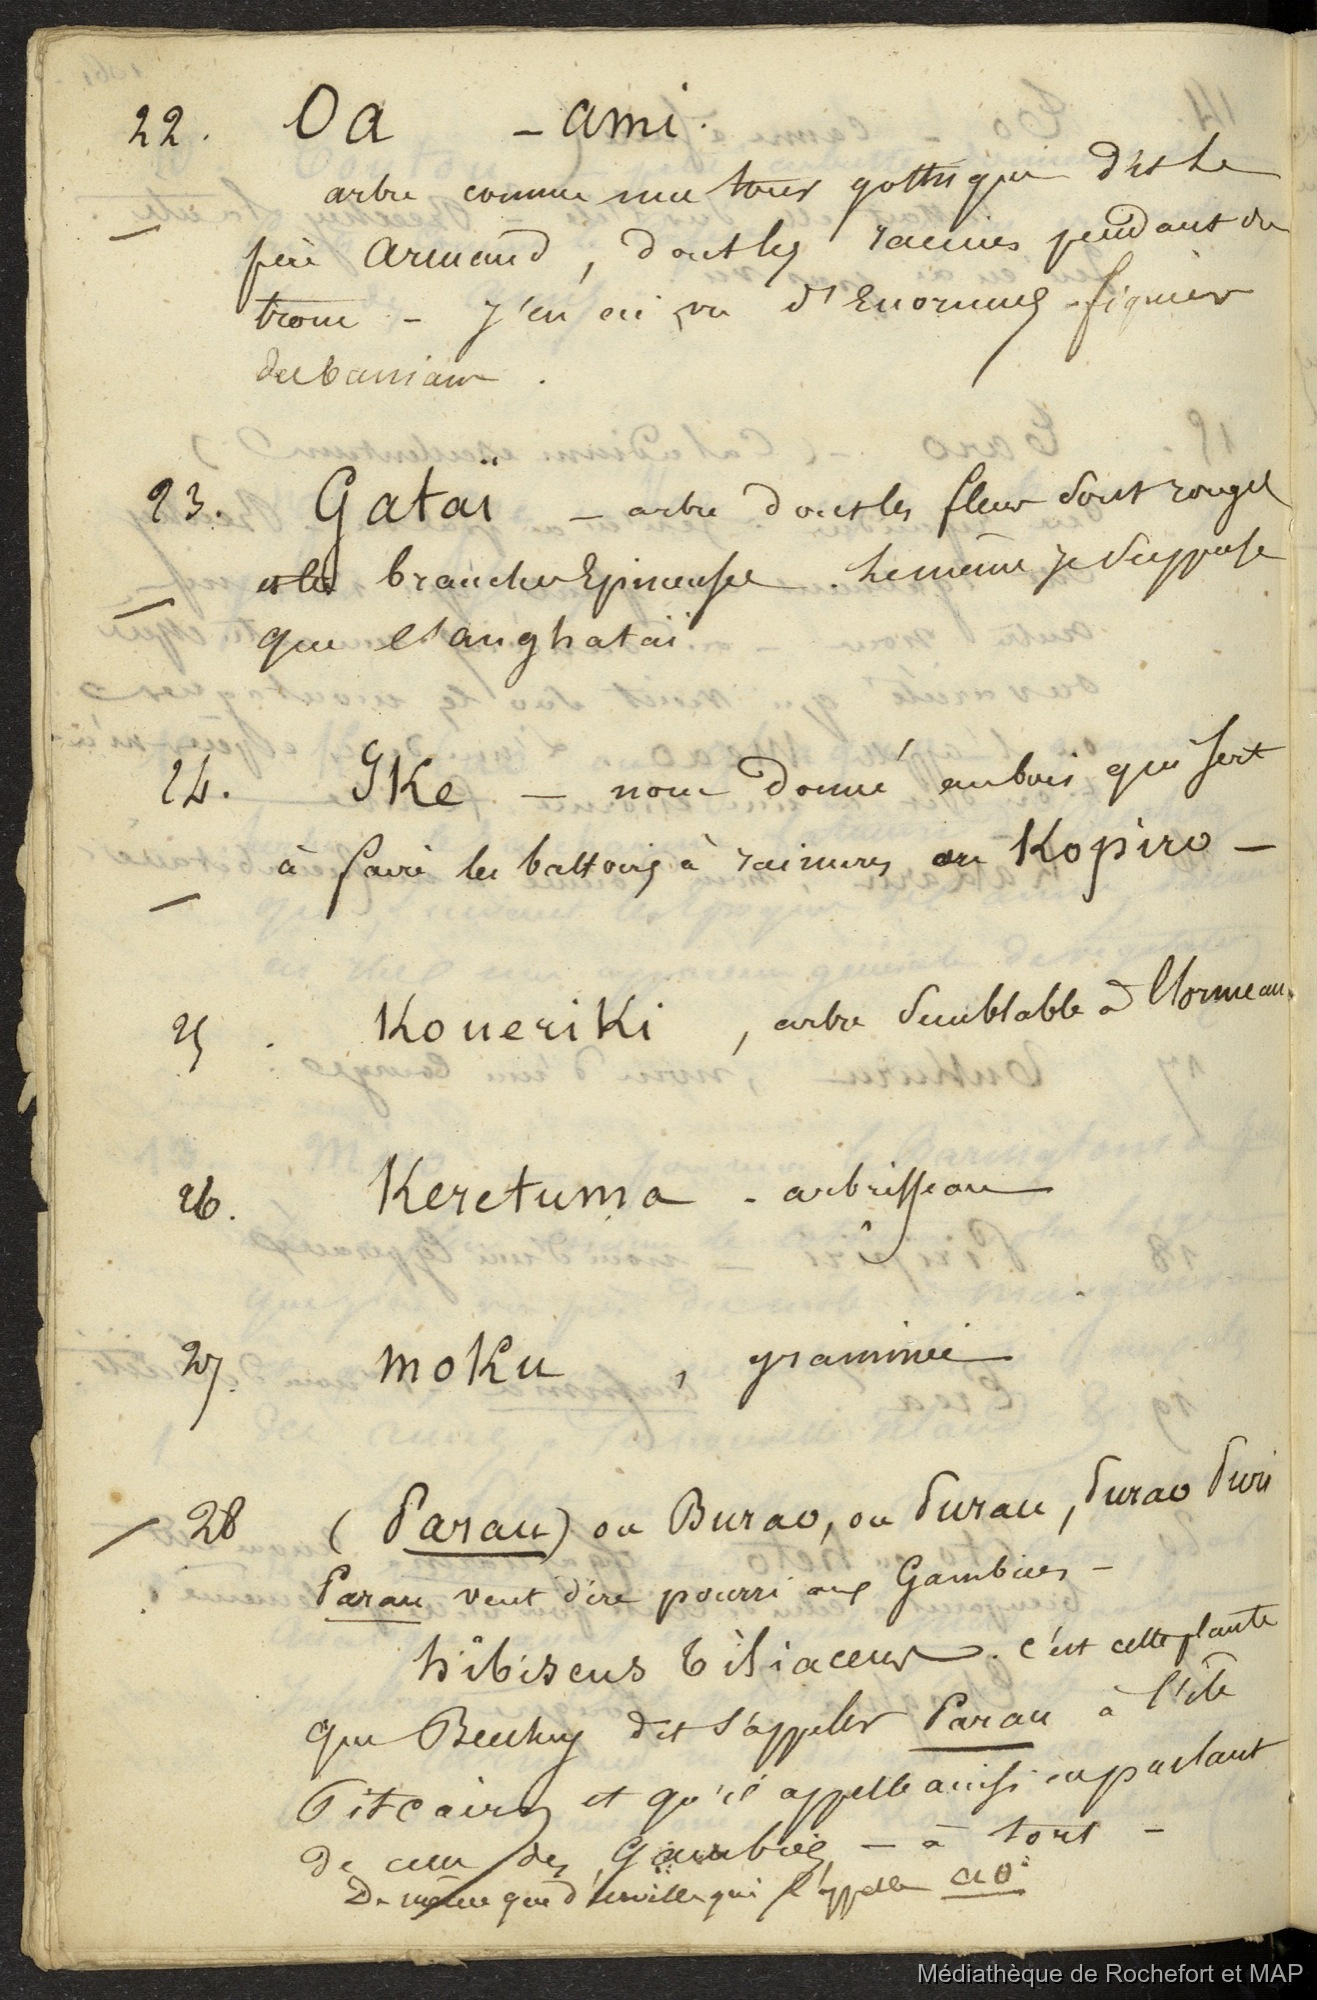 22. Oa - ami.
arbre comme une tour gothique dit le
père Armand, dont les racines pendant du
tronc - j'en ai vu d'Enormes - figuier
des banians.
23. Gataï - arbre dont les fleurs sont rouges
et les branches Epineuses. le même je suppose
que l'anghataï
24. Ike - nom donné au bois qui sert
à faire les battoirs à rainures ou Kopiro -
25. Koueriki, arbre semblable à l'ormeau.
26. Keretuma - arbrisseau
27. moku, graminée
28 (Parau) ou Burao, ou Purau, Purao Puri
Parau veut dire pourri aux Gambiers -
hibiscus Tiliaceus. c'est cette plante
que Beechey dit s'appeler Parau à l'île
Pitcairn et qu'il appelle ainsi en parlant
de ceux des Gambier - à tort -
De même que d'urville qui l'appelle ao
Médiathèque de Rochefort et MAP